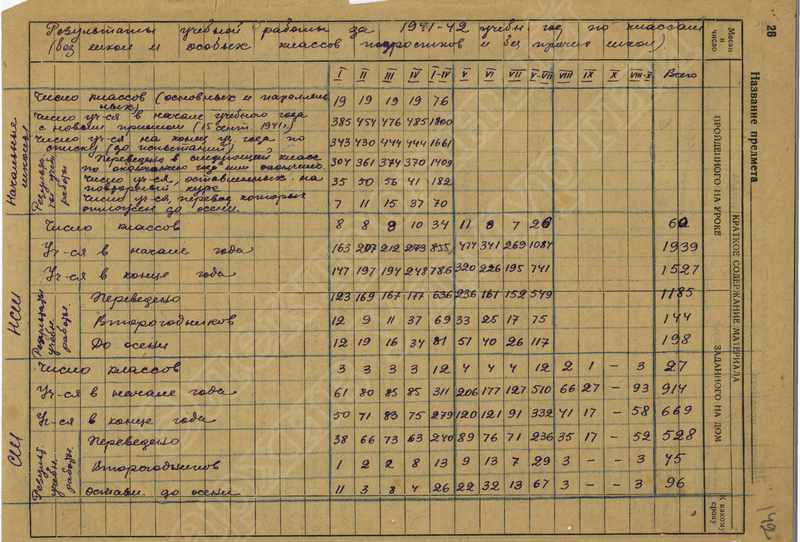 Результаты учебной работы за 1941-42 учебн. год по классам
(без школ и особых классов подростков и без прочих школ)
I II III IV I-IV V VI VII V-VII VIII IX X VIII-X Всего
Начальные школы
Число классов (основных и параллельных) 19 19 19 19 76
Число уч-ся в начале учебного года с новым приемом (15 сент. 1941г.) 385 454 476 485 1800
Число уч-ся на конец уч. года по списку (до испытаний) 343 430 444 444 1661
Переведено в следующий класс по окончании год 304 361 374 370 1409
Число уч-ся, оставленных на повторный курс 35 50 56 41 182
Число уч-ся, перевод которых отложен до осени 7 11 15 37 70
НСШ
Число классов 8 8 9 10 34 11 8 7 26 60
Уч-ся в начале года 163 207 212 273 855 474 341 269 1084 1939
Уч-ся в конце года 147 197 194 248 786 320 226 195 741 1527
Результаты учебн. работы
Переведено 123 169 167 177 636 236 161 152 549 1185
Второгодников 12 9 11 37 69 33 25 17 75 144
До осени 12 19 16 34 81 51 40 26 117 198
СШ
Число классов 3 3 3 3 12 4 4 4 12 2 1 - 3 27
Уч-ся в начале года 61 80 85 85 311 206 177 127 510 66 27 - 93 914
Уч-ся в конце года 50 71 83 75 279 120 121 91 332 41 17 - 58 669
Результ. учебн. работы
Переведено 38 66 73 63 240 89 76 71 236 35 17 - 52 528
Второгодников 1 2 2 8 13 9 13 7 29 3 - - 3 45
Оставл. до осени 11 3 8 4 26 22 32 13 67 3 - - 3 96
26
Название предмета
Месяц и число
КРАТКОЕ СОДЕРЖАНИЕ МАТЕРИАЛА
ПРОЙДЕННОГО НА УРОКЕ
ЗАДАННОГО НА ДОМ
К какому сроку